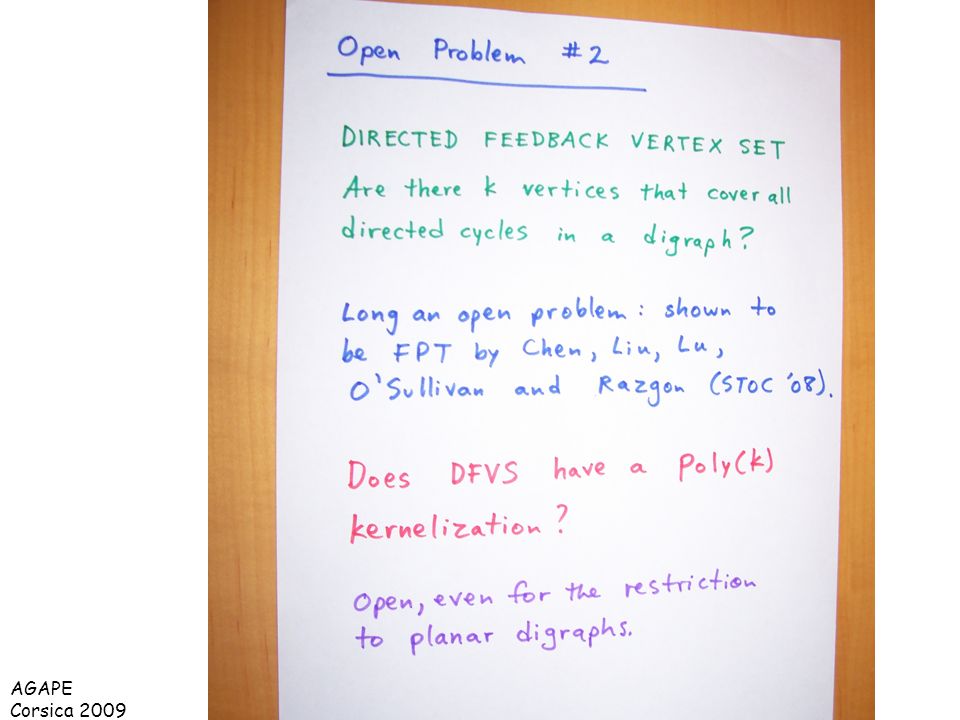 Open Problem #2
DIRECTED FEEDBACK VERTEX SET
Are there k vertices that cover all
directed cycles in a digraph?
Long an open problem: shown to
be FPT by Chen, Liu, Lu,
O'Sullivan and Razgon (STOC '08).
Does DFVS have a poly(k)
kernelization?
Open, even for the restriction
to planar digraphs.
AGAPE
Corsica 2009